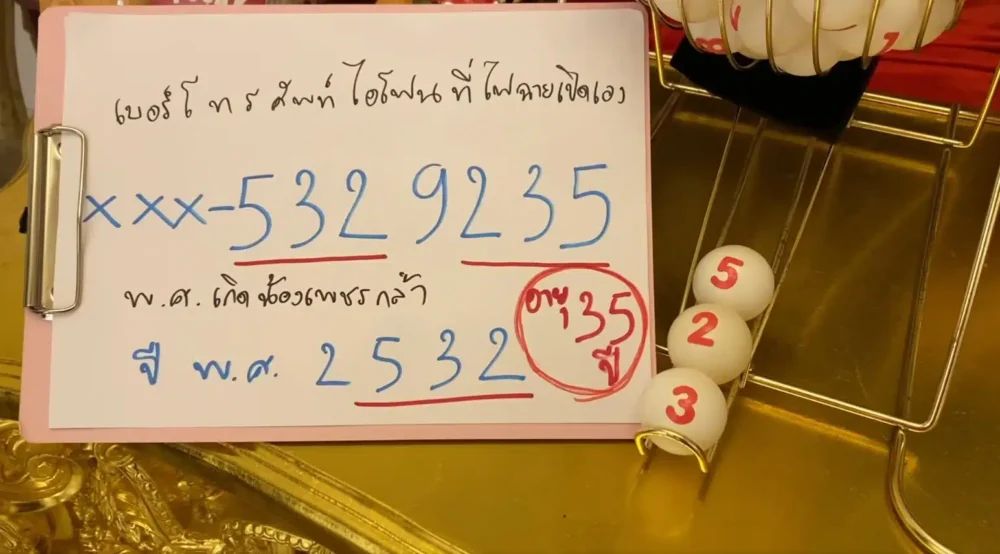 เบอร์โทรศัพท์ไอโฟนที่ไฟฉายเปิดเอง
xxx-532 9235
พ.ศ. เกิดน้องเพชรกล้า
อายุ 35 ปี
ปี พ.ศ. 2532
5
2
3